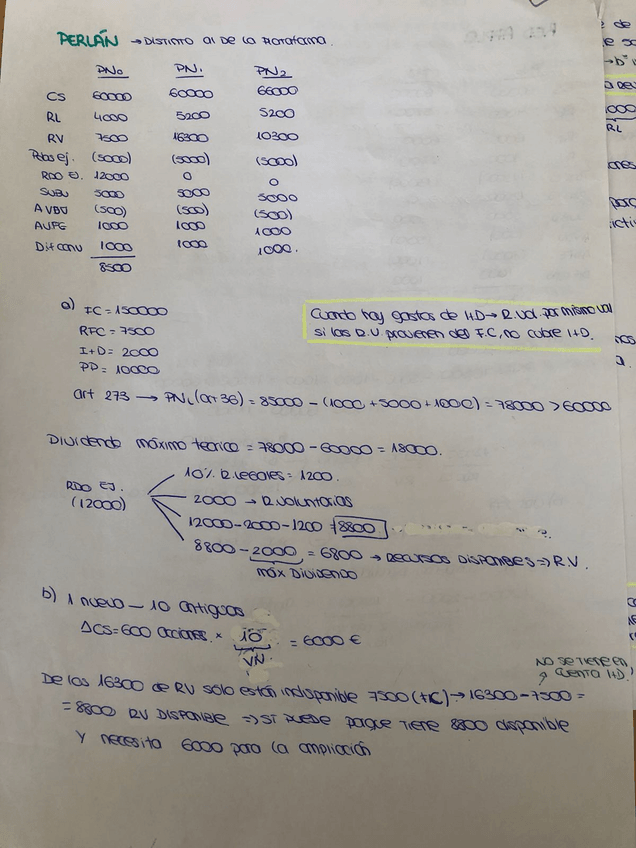 PERLÁN → DISTINTO al DE LA PLATAFORMA.
PN₀ PN₁ PN₂
CS 60000 60000 66000
RL 4000 5200 5200
RV 7500 16300 10300
(5000) (5000) (5000)
RDO EJ. 12000 0 0
SUBV 5000 5000 5000
AVBV (500) (500) (500)
1000 1000 1000
Dif conv 1000 1000 1000.
8500
a) FC = 150000
RFC = 7500
I+D = 2000
PD = 10000
Cuando hay gastos de I+D → R.Vol. por mismo val
si las R.V provienen del F.C, no cubre I+D.
art 273 → PNL (art 36) = 85000 - (1000 + 5000 + 1000) = 78000 > 60000
Dividendo máximo teorico = 78000 - 60000 = 18000.
RDO EJ. (12000)
10% R.legales = 1200.
2000 → R.Voluntarias
12000 - 2000 - 1200 = 8800
8800 - 2000 = 6800 → RECURSOS DISPONIBLES ⇒ R.V.
máx DIVIDENDO
b) 1 nueva — 10 antiguas
ΔCS = 600 acciones × 10 = 6000 €
VN
NO SE TIENE EN
CUENTA I+D.
De los 16300 de RV solo están indisponible 7500 (FC) → 16300 - 7500 =
= 8800 RV DISPONIBLE ⇒ SÍ puede porque tiene 8800 disponible
Y necesita 6000 para la ampliación